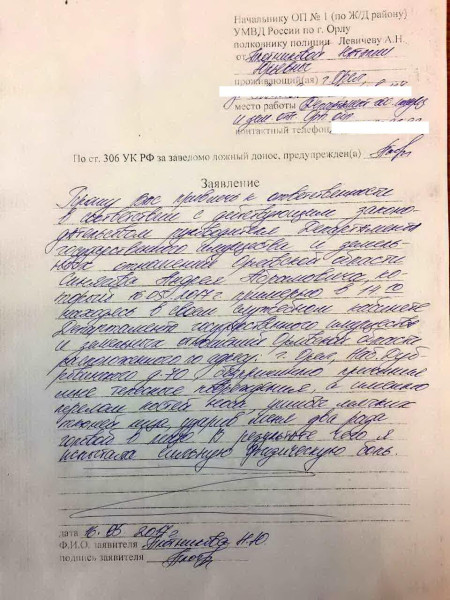 Начальнику ОП № 1 (по Ж/Д району)
УМВД России по г. Орлу
полковнику полиции Левичеву А.Н.
от
Юрьевны
проживающий(ая) г. Орел
место работы Департамент гос. имущ.
и зем. от. Орл. обл
контактный телефон
По ст. 306 УК РФ за заведомо ложный донос, предупрежден(а)
Заявление
Прошу Вас привлечь к ответственности
в соответствии с действующим законо-
дательством руководителя Департамента
государственного имущества и земель-
ных отношений Орловской области
Андрея Абрамовича ко-
торый 16.05.2017г примерно в 14:00
находясь в своем служебном кабинете
Департамента государственного имущества
и земельных отношений Орловской области
расположенного по адресу: г. Орел, Наб. Дуб-
ровинского д. 70 причинил
мне телесные повреждения, а именно
перелом костей носа, ушиб мягких
тканей лица, ударив меня два раза
головой в лицо. В результате чего я
испытала сильную физическую боль.
дата 16.05.2017г
Ф.И.О. заявителя Н.Ю
подпись заявителя